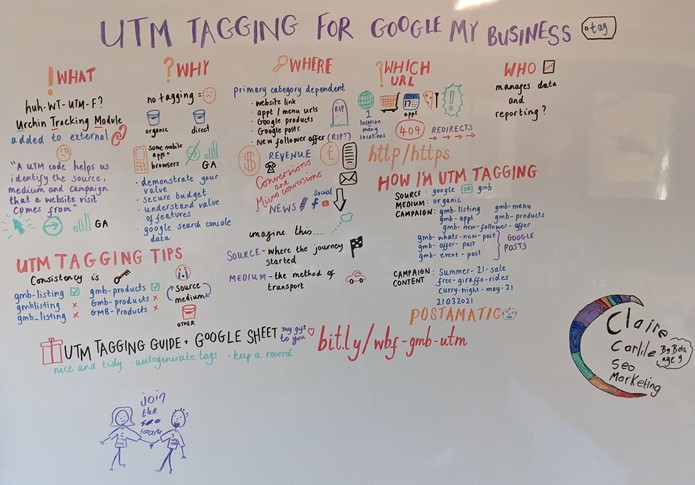 UTM TAGGING FOR GOOGLE MY BUSINESS
tag
! WHAT
huh-WT-UTM-F?
Urchin Tracking Module
added to external
"A UTM code helps us
identify the source,
medium and campaign
that a website visit
comes from"
GA
? WHY
no tagging =
organic
direct
some mobile
apps +
browsers
GA
• demonstrate your
value
• secure budget
• understand value
of features
• google search console
data
WHERE
primary category dependent
• website link
• appt / menu urls
• Google products
• Google posts
• New follower offer
RIP
(RIP?)
REVENUE
$
£
Conversions
and
Micro conversions
NEWS
Social
f
imagine this....
SOURCE - where the journey
started
MEDIUM - the method of
transport
? WHICH
URL
1
location
many
locations
17
appt
!
404
REDIRECTS
http/https
WHO
manages data
and
reporting?
HOW I'M UTM TAGGING
SOURCE: google OR gmb
MEDIUM: organic
CAMPAIGN: gmb-listing gmb-menu
gmb-appt gmb-products
gmb-new-follower-offer
gmb-whats-new-post
gmb-offer-post
gmb-event-post
GOOGLE
POSTS
CAMPAIGN
CONTENT
: Summer-21-sale
free-giraffe-rides
curry-night-may-21
21032021
POSTAMATIC
UTM TAGGING TIPS
Consistency is
gmb-listing ✓ gmb-products ✓
gmblisting × Gmb-products ×
gmb_listing × GMB-Products ×
Source
medium
OTHER
UTM TAGGING GUIDE + GOOGLE SHEET
my gift
to you
bit.ly/wbf-gmb-utm
• nice and tidy • autogenerate tags • keep a record
Claire
Carlile
Seo
Marketing
By Bets
age 9
join
the
seo